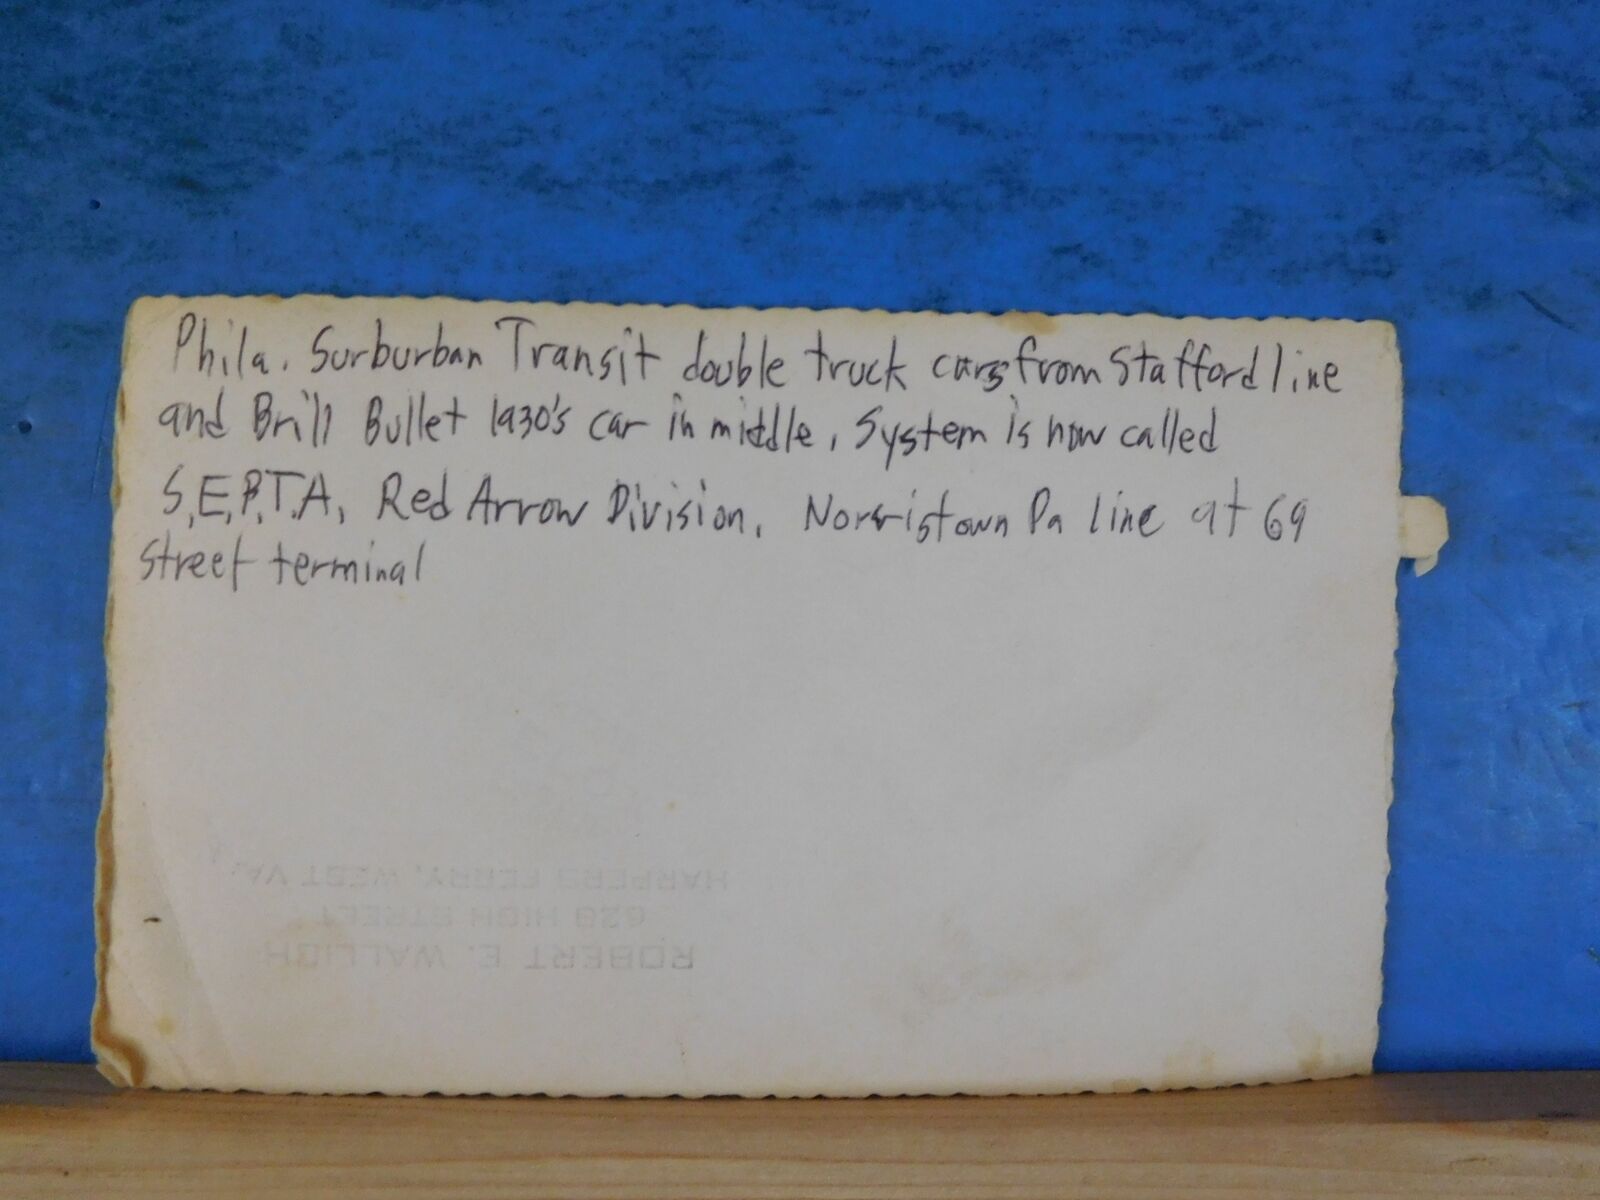 Phila. Surburban Transit double truck cars from Stafford line
and Brill Bullet 1930's car in middle. System is now called
S.E.P.T.A. Red Arrow Division. Norristown Pa line at 69
street terminal
ROBERT E. WALLICH
629 HIGH STREET
HARPERS FERRY, WEST VA.